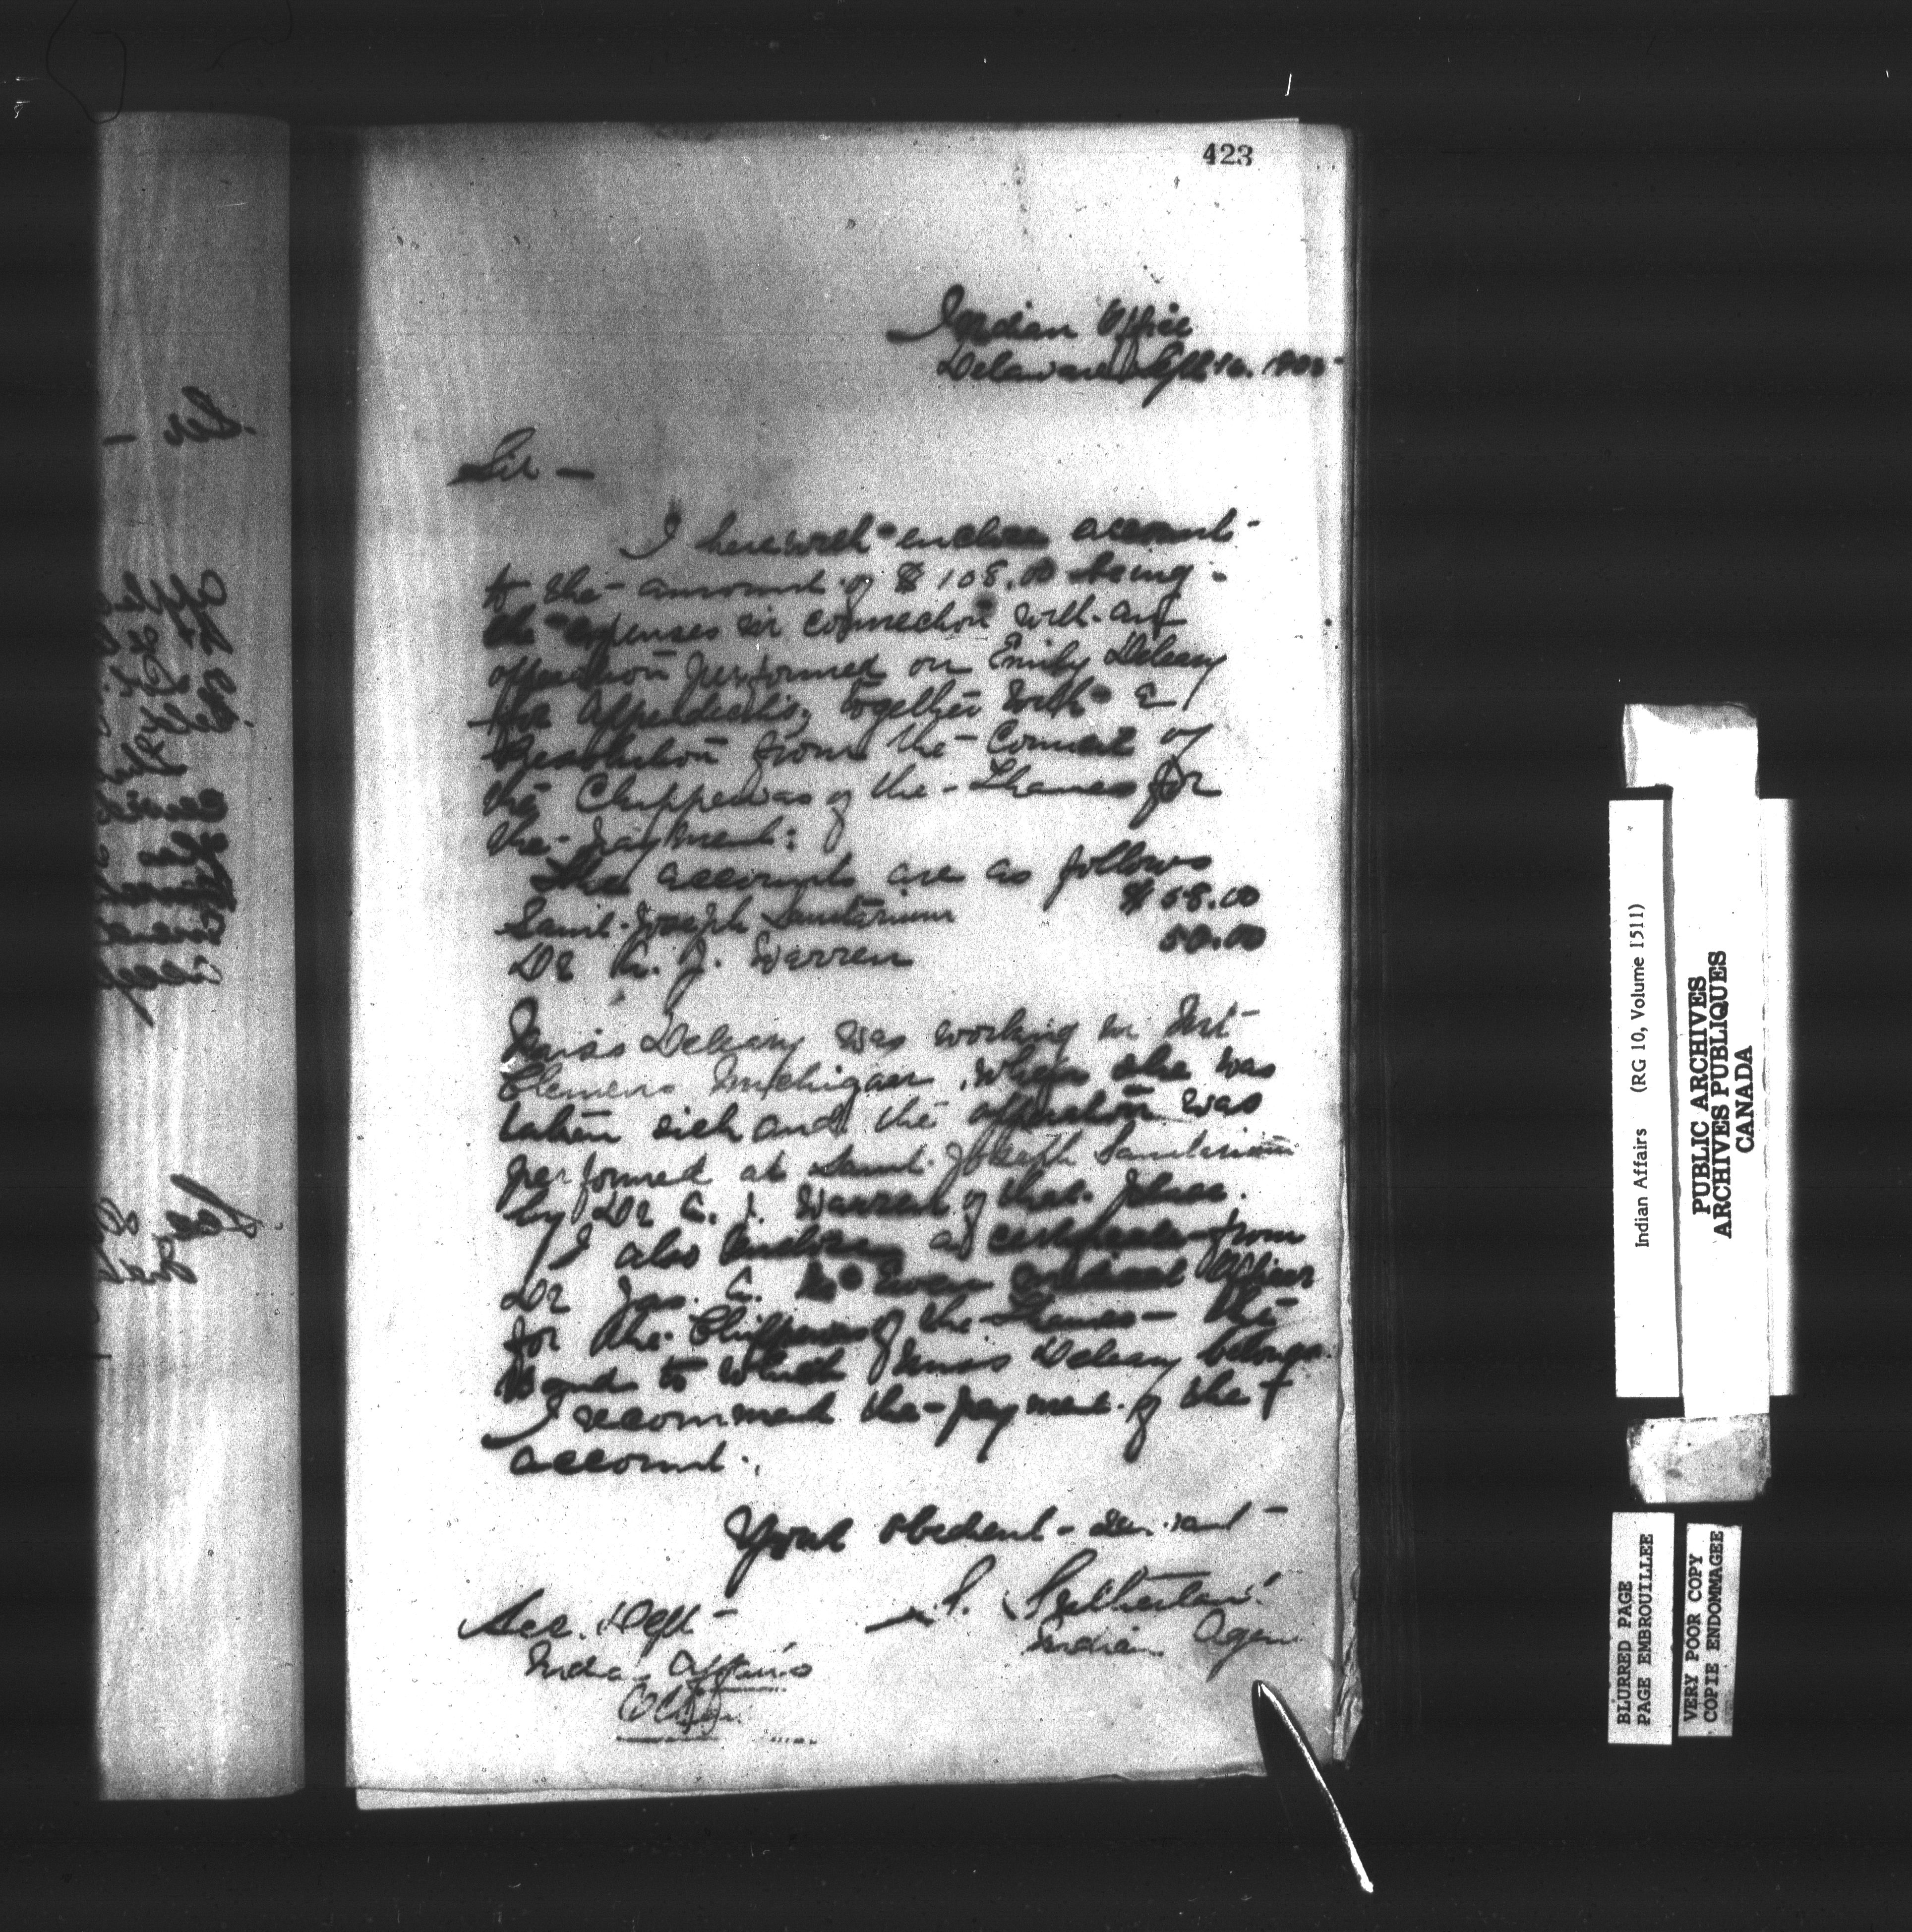 423
Indian Office
Delaware Sept 1905
Sir —
I herewith enclose account
to the amount of $108.00 being
the expenses in connection with an
opperation performed on Emily Deleary
for Appendicitis, together with a
Resolution from the Council of
the Chippewas of the Thames for
the payment:
The accounts are as follows
Saint Joseph Sanitarium $58.00
Dr. J. Warren 50.00
Miss Deleary was working in Mt
Clemens Michigan, when she was
taken sick and the opperation was
performed at Saint Joseph Sanitarium
by Dr J. Warren of that place.
I also enclose a certificate from
Dr Jas. Mc Ewen Medical Officer
for the Chippewas of the Thames — the
Band to which Miss Deleary belongs.
I recommend the payment of the
account.
Your obedient servant
S. Sutherland
Sec. Dept
Indian Agent
Indian Affairs
Ottawa
Indian Affairs (RG 10, Volume 1511)
PUBLIC ARCHIVES
ARCHIVES PUBLIQUES
CANADA
BLURRED PAGE
PAGE EMBROUILLEE
VERY POOR COPY
COPIE ENDOMMAGEE